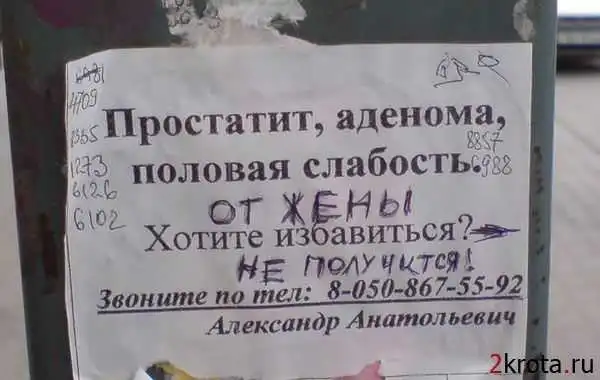 4709
Простатит, аденома,
8857
половая слабость.
6988
1273
6126
6102
ОТ ЖЕНЫ
Хотите избавиться?
НЕ ПОЛУЧИТСЯ!
Звоните по тел: 8-050-867-55-92
Александр Анатольевич
2krota.ru